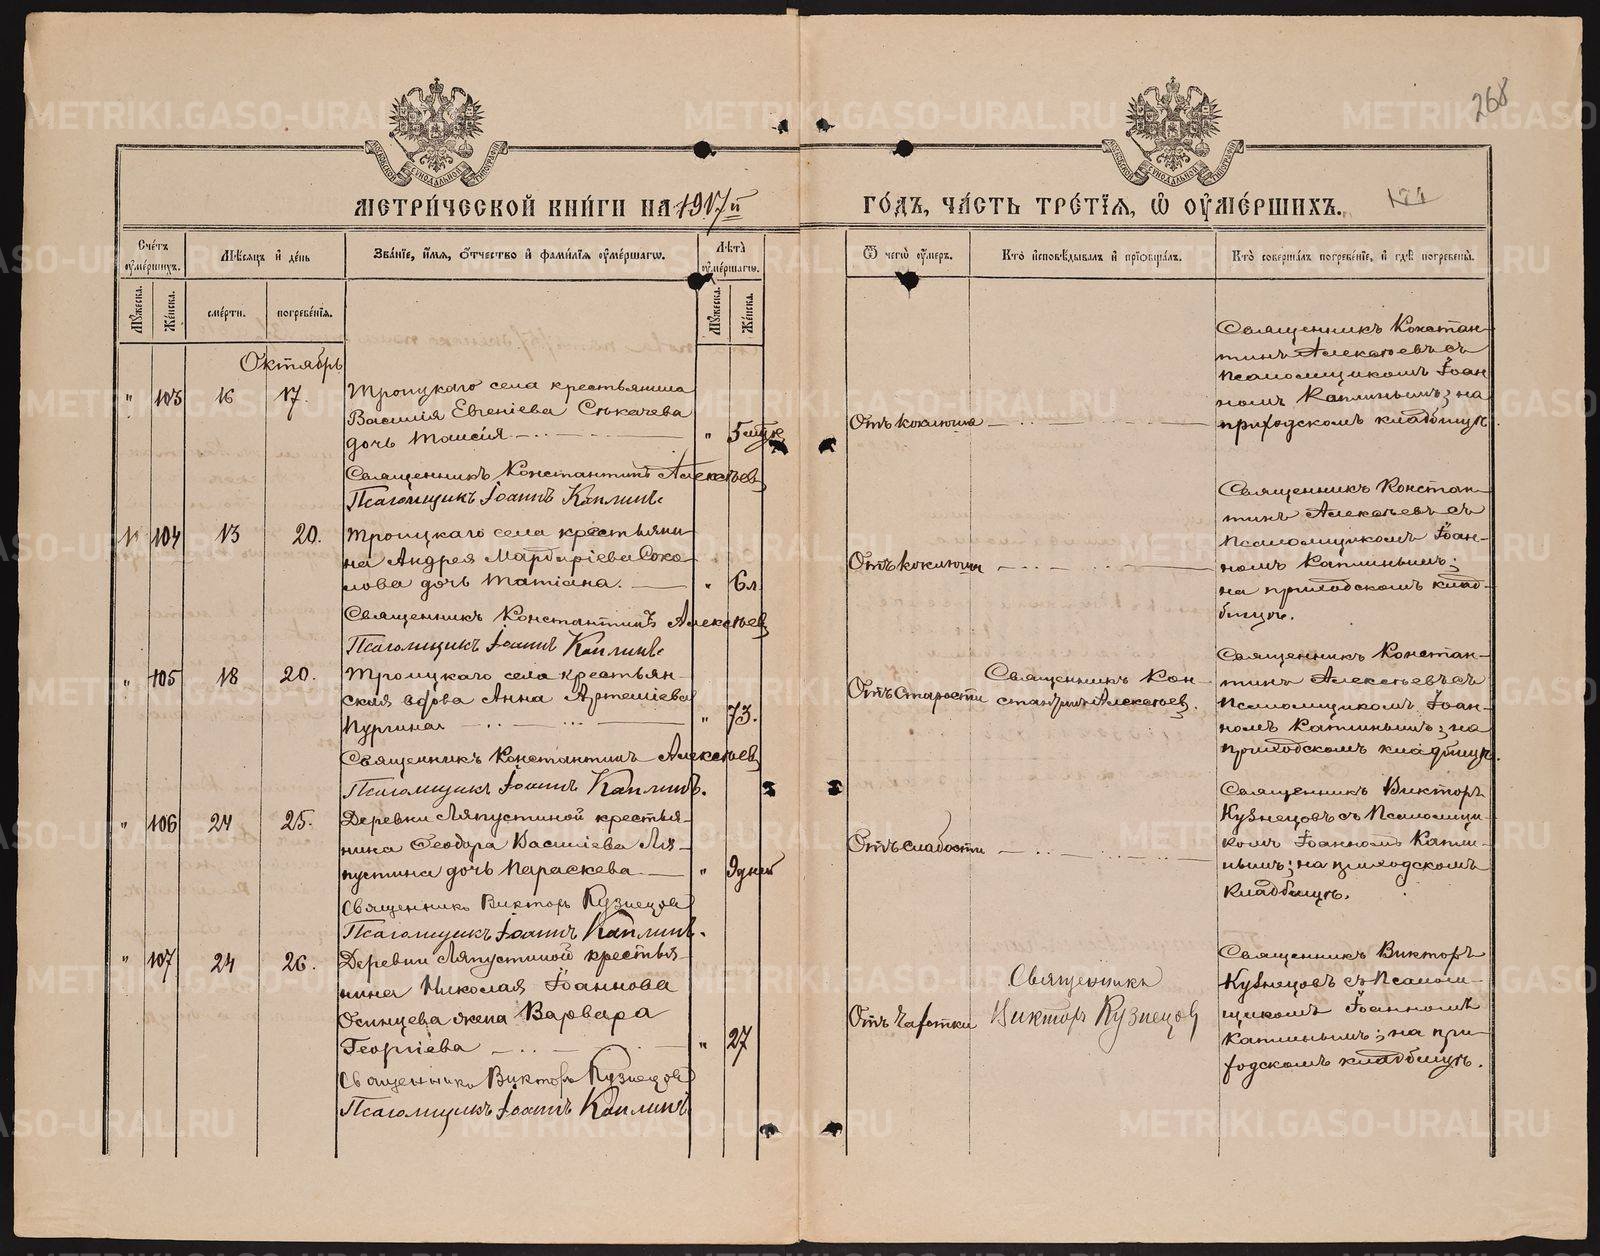 268
МЕТРИ́ЧЕСКОЙ КНИ́ГИ НА 1917й
ГО́ДЪ, ЧА́СТЬ ТРЕ́ТІЯ, Ѿ ОУМЕ́РШИХЪ.
Сче́тъ оуме́ршихъ.
Мѣ́сяцъ и҆ де́нь
Зва́ніе, и҆́мя, ѻ҆́тчество и҆ фами́лія оуме́ршагѡ.
Лѣ́та оуме́ршагѡ.
Ѿ чегѡ̀ оу́меръ.
Кто̀ и҆сповѣ́дывалъ и҆ пріобща́лъ.
Кто̀ соверша́лъ погребе́ніе, и҆ гдѣ̀ погребены̀.
Му́жеска.
Же́нска.
сме́рти.
погребе́нія.
Му́жеска.
Же́нска.
Октябрь
" 103 16 17. Троицкаго села крестьянина
Василія Евгеніева Секачева
дочь Таисія " 5
Священникъ Константинъ Алексѣевъ
Псаломщикъ Іоаннъ Каплинъ.
Отъ коклюша
Священникъ Констан-
тинъ Алексѣевъ съ
Псаломщикомъ Іоан
номъ Каплинымъ; на
приходскомъ кладбищѣ.
" 104 13 20. Троицкаго села крестьяни-
на Андрея Мардаріева Соко-
лова дочь Татіана. " 6 л.
Священникъ Константинъ Алексѣевъ
Псаломщикъ Іоаннъ Каплинъ.
Отъ коклюша
Священникъ Констан-
тинъ Алексѣевъ съ
Псаломщикомъ Іоан-
номъ Каплинымъ;
на приходскомъ клад-
бищѣ.
" 105 18 20. Троицкаго села крестьян-
ская вдова Анна Артеміева
Пургина " 73.
Священникъ Константинъ Алексѣевъ
Псаломщикъ Іоаннъ Каплинъ.
Отъ старости
Священникъ Кон-
стантинъ Алексѣев.
Священникъ Констан-
тинъ Алексѣевъ съ
Псаломщикомъ Іоан-
номъ Каплинымъ; на
приходскомъ кладбищѣ.
" 106 24 25. Деревни Ляпустиной крестья-
нина Ѳеодора Василіева Ля-
пустина дочь Параскева " 9 дней
Священникъ Викторъ Кузнецовъ
Псаломщикъ Іоаннъ Каплинъ.
Отъ слабости
Священникъ Викторъ
Кузнецовъ съ Псаломщи-
комъ Іоанномъ Капли-
нымъ; на приходскомъ
кладбищѣ.
" 107 24 26. Деревни Ляпустиной крестья-
нина Николая Іоаннова
Осинцева жена Варвара
Георгіева " 27
Священникъ Викторъ Кузнецовъ
Псаломщикъ Іоаннъ Каплинъ
Отъ чахотки
Священникъ
Викторъ Кузнецов
Священникъ Викторъ
Кузнецовъ съ Псаломщ-
щикомъ Іоанномъ
Каплинымъ; на при-
ходскомъ кладбищѣ.
METRIKI.GASO-URAL.RU